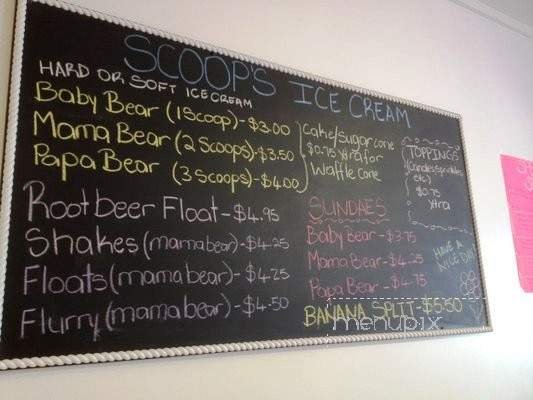 SCOOP'S ICE CREAM
HARD OR SOFT ICE CREAM
Baby Bear (1 Scoop) - $3.00
Mama Bear (2 Scoops) - $3.50
Papa Bear (3 Scoops) - $4.00
Cake/Sugar cone
$0.75 Xtra for
Waffle Cone
TOPPINGS
(Candies, sprinkles
etc.)
$0.75
Xtra
Rootbeer Float - $4.95
Shakes (mama bear) - $4.25
Floats (mama bear) - $4.25
Flurry (mama bear) - $4.50
SUNDAES
Baby Bear - $3.75
Mama Bear - $4.25
Papa Bear - $4.75
BANANA SPLIT - $5.50
HAVE A
NICE DAY!
menupix